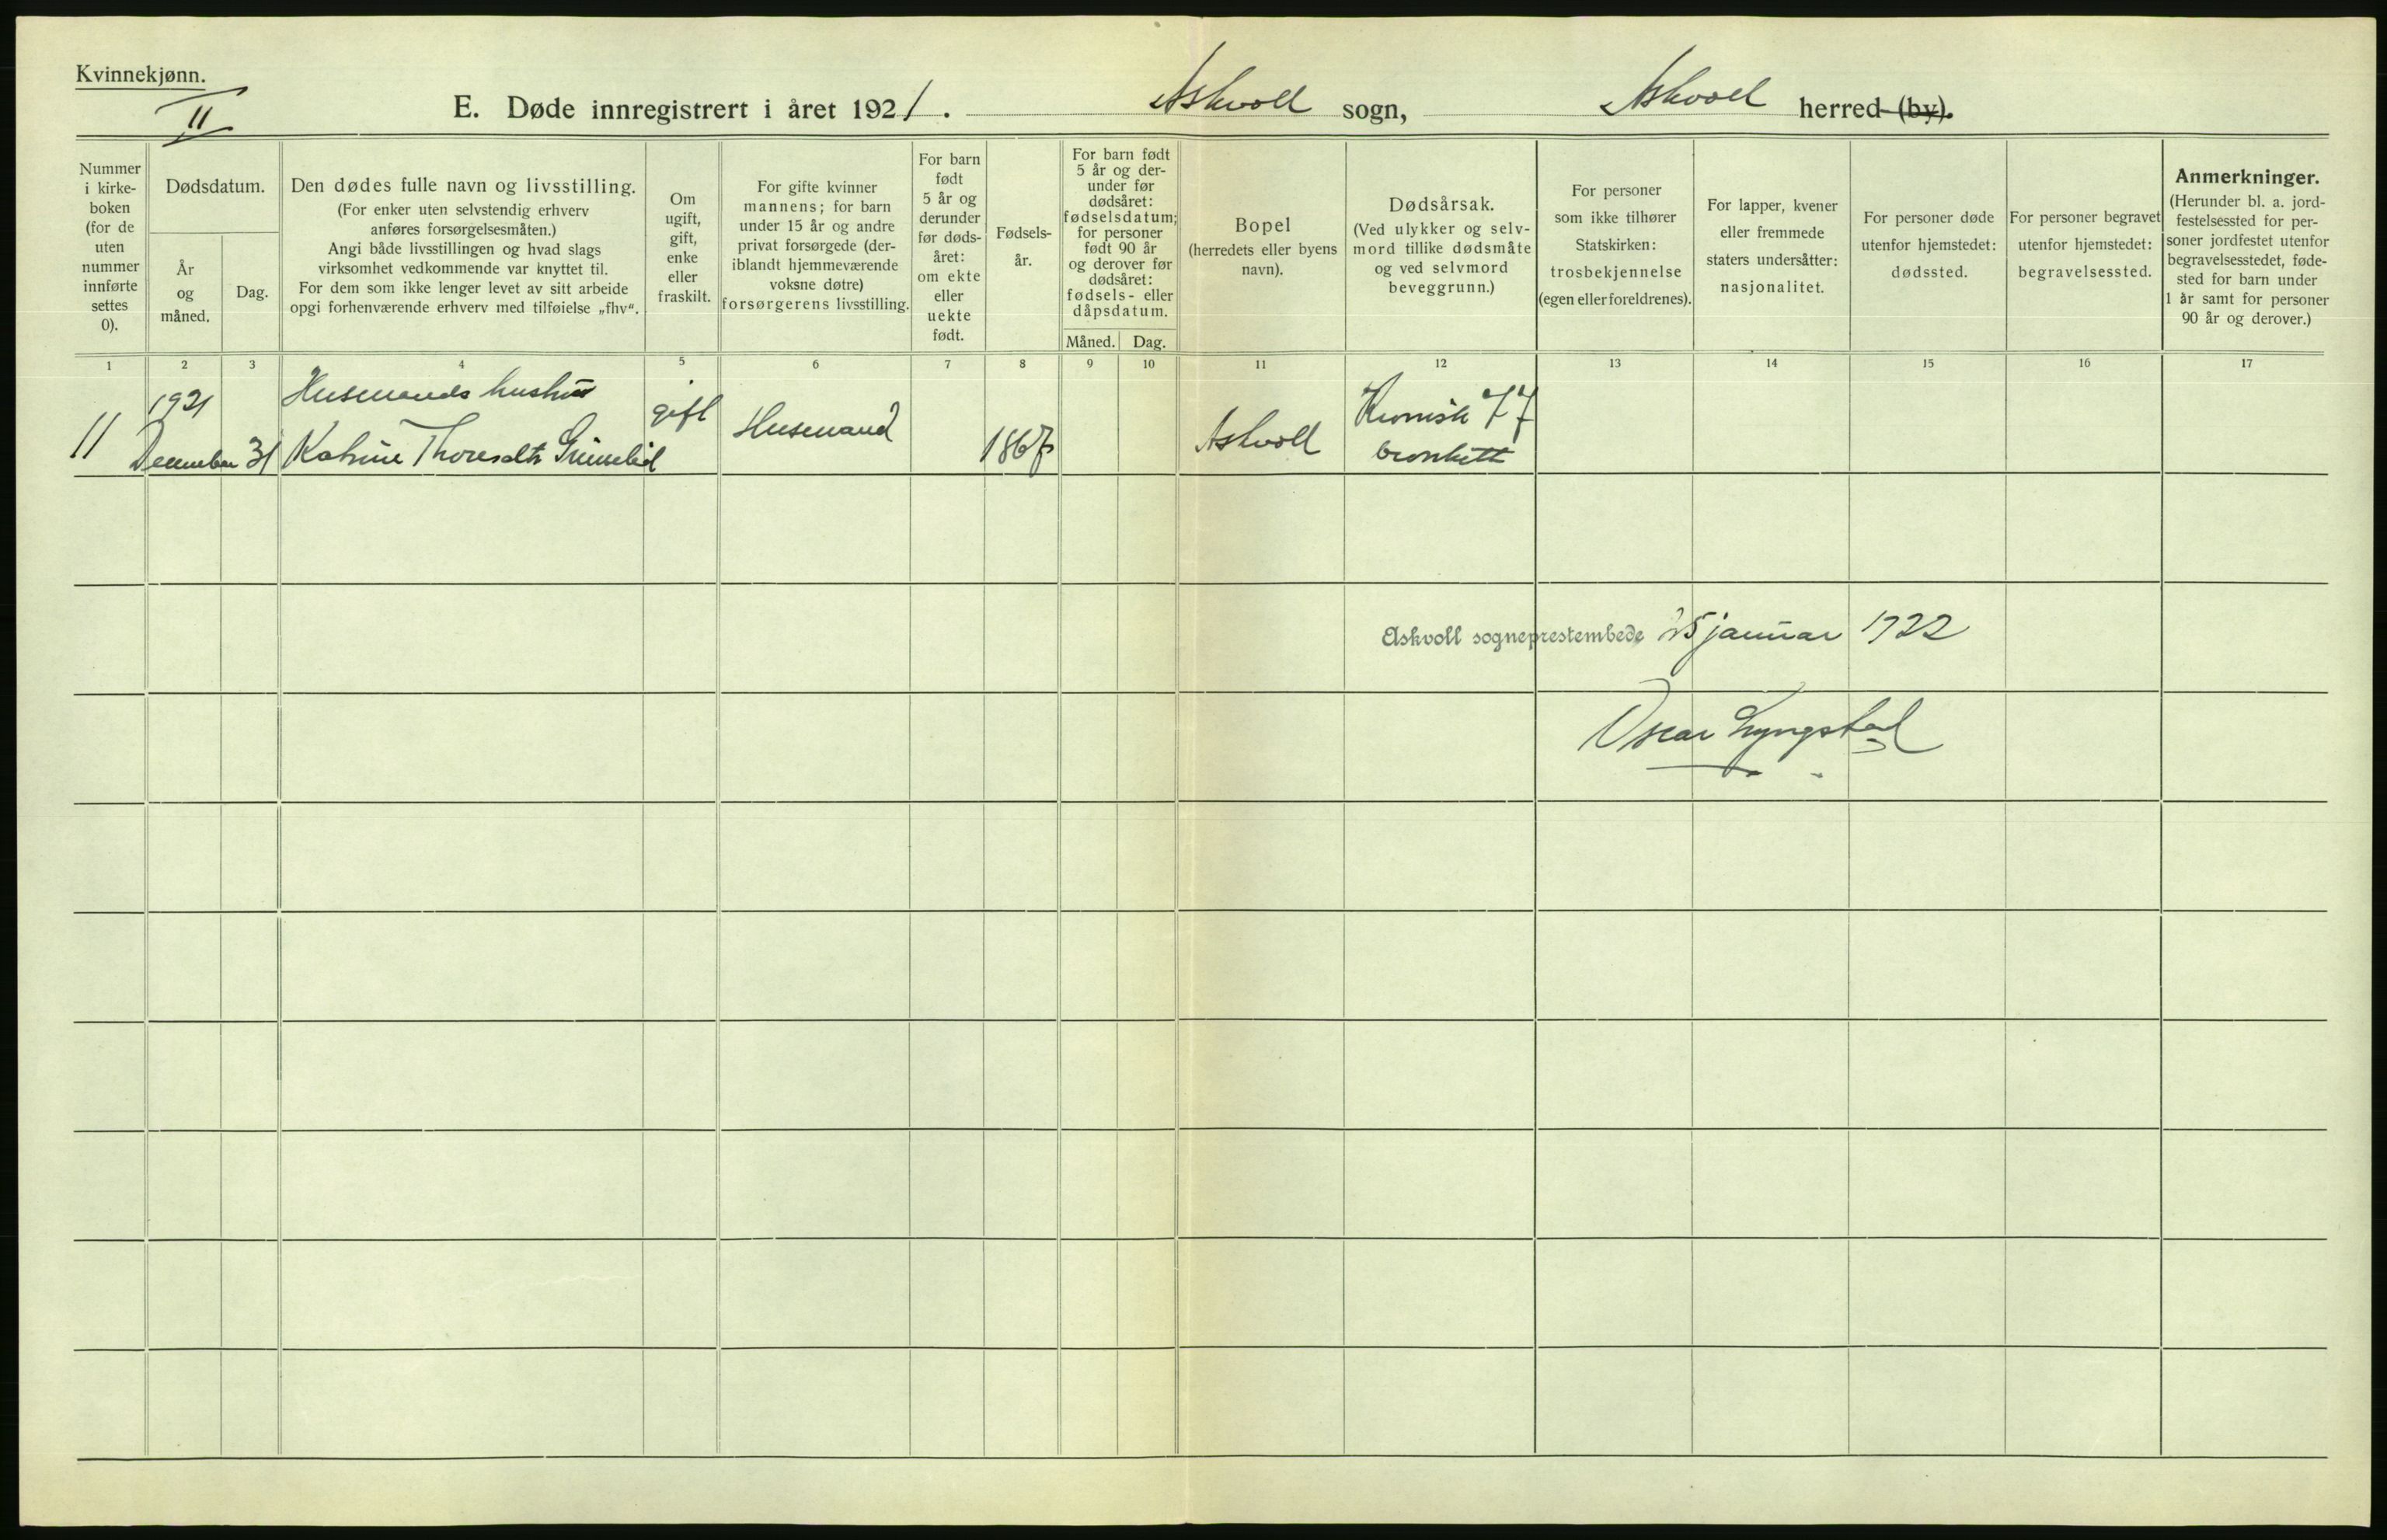 Kvinnekjønn.
II
E. Døde innregistrert i året 1921. Askvoll sogn, Askvoll herred (by).
Nummer
i kirke-
boken
(for de
uten
nummer
innførte
settes
0).
Dødsdatum.
År
og
måned.
Dag.
Den dødes fulle navn og livsstilling.
(For enker uten selvstendig erhverv
anføres forsørgelsesmåten.)
Angi både livsstillingen og hvad slags
virksomhet vedkommende var knyttet til.
For dem som ikke lenger levet av sitt arbeide
opgi forhenværende erhverv med tilføielse „fhv“.
Om
ugift,
gift,
enke
eller
fraskilt.
For gifte kvinner
mannens; for barn
under 15 år og andre
privat forsørgede (der-
iblandt hjemmeværende
voksne døtre)
forsørgerens livsstilling.
For barn
født
5 år og
derunder
før døds-
året:
om ekte
eller
uekte
født.
Fødsels-
år.
For barn født
5 år og der-
under før
dødsåret:
fødselsdatum;
for personer
født 90 år
og derover før
dødsåret:
fødsels- eller
dåpsdatum.
Måned. Dag.
Bopel
(herredets eller byens
navn).
Dødsårsak.
(Ved ulykker og selv-
mord tillike dødsmåte
og ved selvmord
beveggrunn.)
For personer
som ikke tilhører
Statskirken:
trosbekjennelse
(egen eller foreldrenes).
For lapper, kvener
eller fremmede
staters undersåtter:
nasjonalitet.
For personer døde
utenfor hjemstedet:
dødssted.
For personer begravet
utenfor hjemstedet:
begravelsessted.
Anmerkninger.
(Herunder bl. a. jord-
festelsessted for per-
soner jordfestet utenfor
begravelsesstedet, føde-
sted for barn under
1 år samt for personer
90 år og derover.)
1 2 3 4 5 6 7 8 9 10 11 12 13 14 15 16 17
11
1921
December 31
Husmands hustru
Katrine Thoresdtr
gift
Husmand
1867
Askvoll
Kronisk 77
bronkitt
Askvoll sogneprestembede 25 januar 1922
Oscar Lyngstad